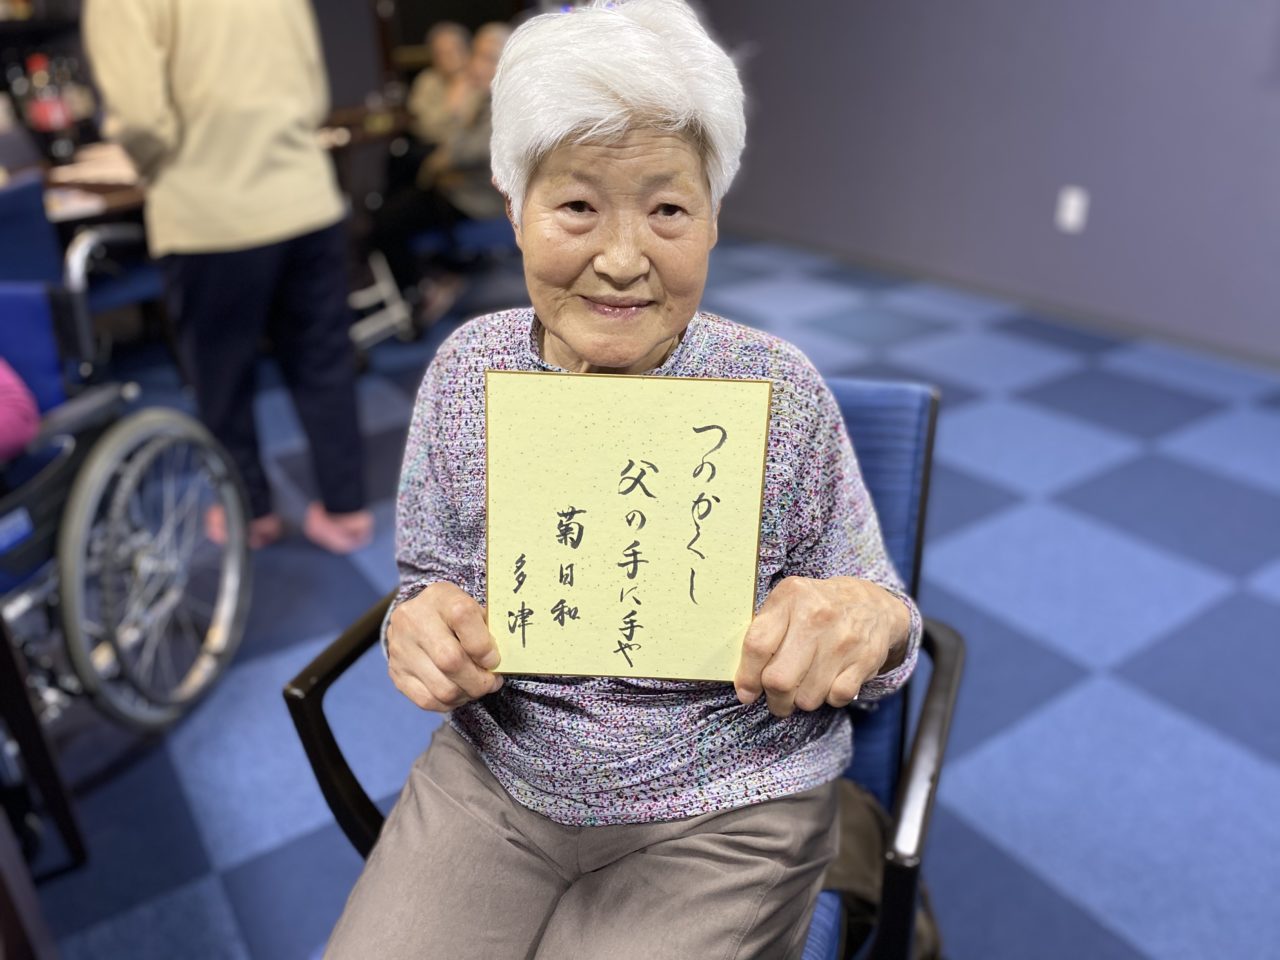 つのかくし
父の手に手や
菊日和
多津